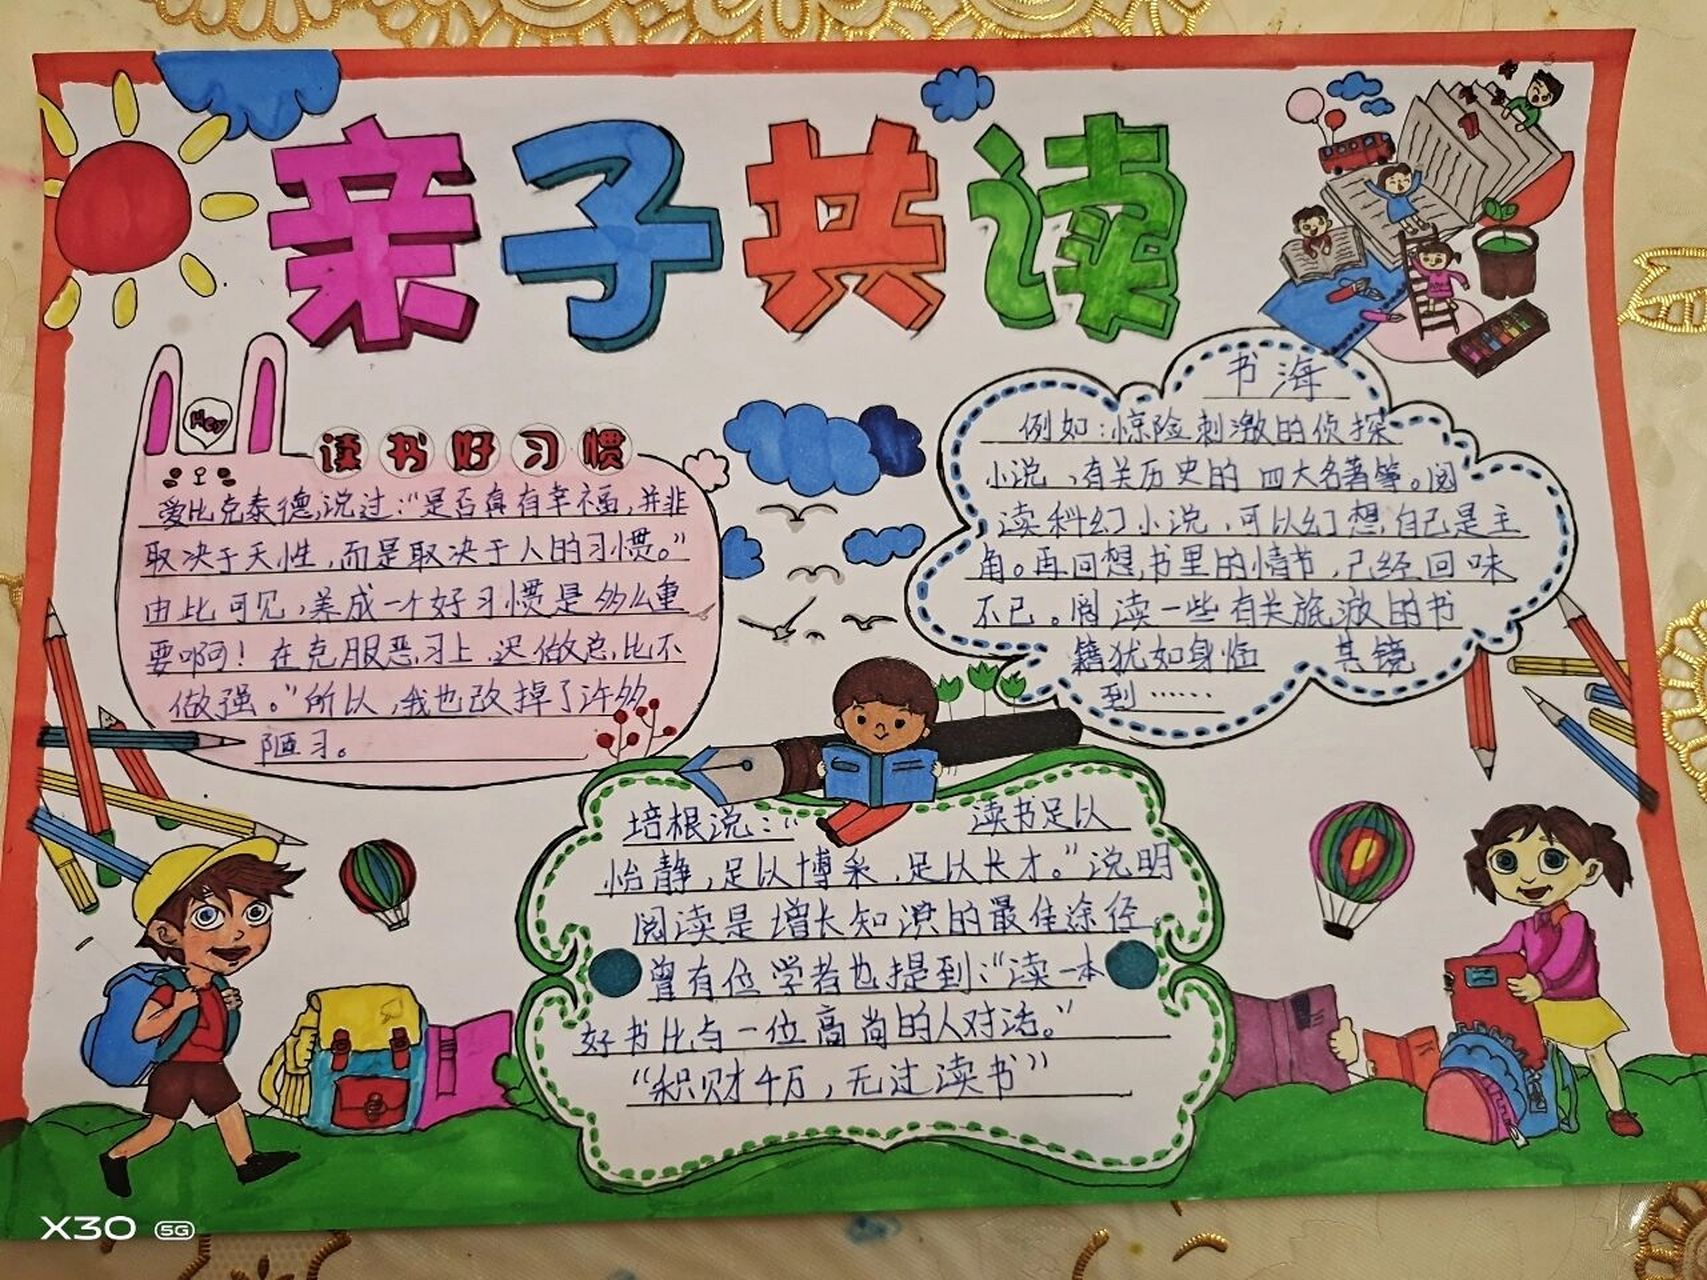 亲子共读
Hey
读书好习惯
爱比克泰德,说过:“是否真有幸福,并非
取决于天性,而是取决于人的习惯。”
由此可见,养成一个好习惯是多么重
要啊!在克服恶习上,迟做总比不
做强。”所以,我也改掉了许多
陋习。
书海
例如:惊险刺激的侦探
小说,有关历史的四大名著等。阅
读科幻小说,可以幻想自己是主
角。再回想,书里的情节,已经回味
不已。阅读一些有关旅游的书
籍犹如身临 其镜
到……
培根说:“ 读书足以
怡静,足以博采,足以长才。”说明
阅读是增长知识的最佳途径。
曾有位学者也提到:“读一本
好书比与一位高尚的人对话。”
“积财千万,无过读书”
X30 5G